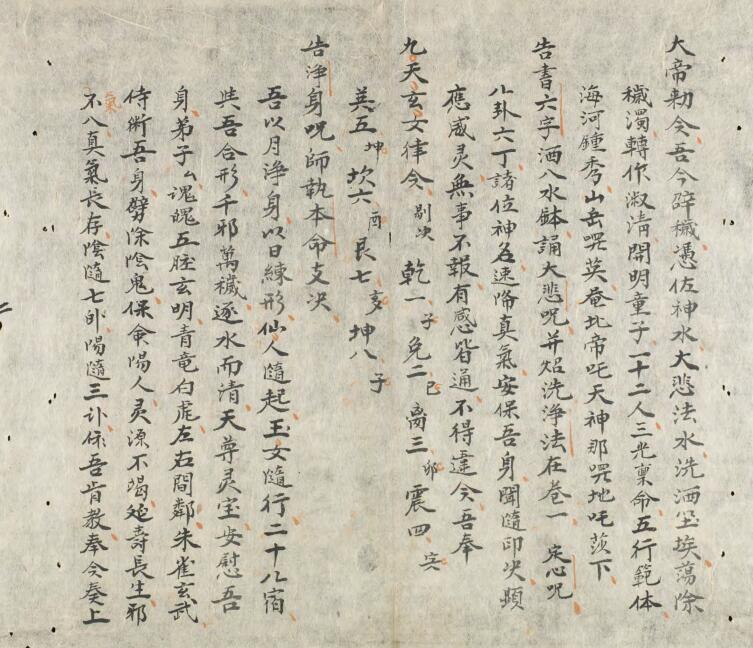 大帝勅令吾今辟穢憑佐神水大悲法水洗洒尘埃蕩除
穢濁轉作淑清開明童子一十二人三光稟命五行範体
海河鍾秀山岳英菴北帝吒天神那地吒莎下
告書六字洒八水鉢誦大悲咒并炤洗淨法在卷一 定心呪
八卦六丁諸位神名速降真氣安保吾身聞隨印决顯
應感灵無事不報有感皆通不得違令吾奉
九天玄女律令 剔次 乾一 子 兌二 巳 离三 卯 震四 寅
巽五 坤 坎六 酉 艮七 亥 坤八 子
告淨身呪師執本命支决
吾以月淨身以日練形仙人隨起玉女隨行二十八宿
與吾合形千邪萬穢逐水而清天尊灵宝安慰吾
身弟子厶魂魄五脏玄明青竜白虎左右間鄰朱雀玄武
侍衛吾身劈除陰鬼保命陽人灵源不竭延壽長生邪
氣
不入真氣長存陰隨七 陽隨三 保吾肯教奉令奏上
二